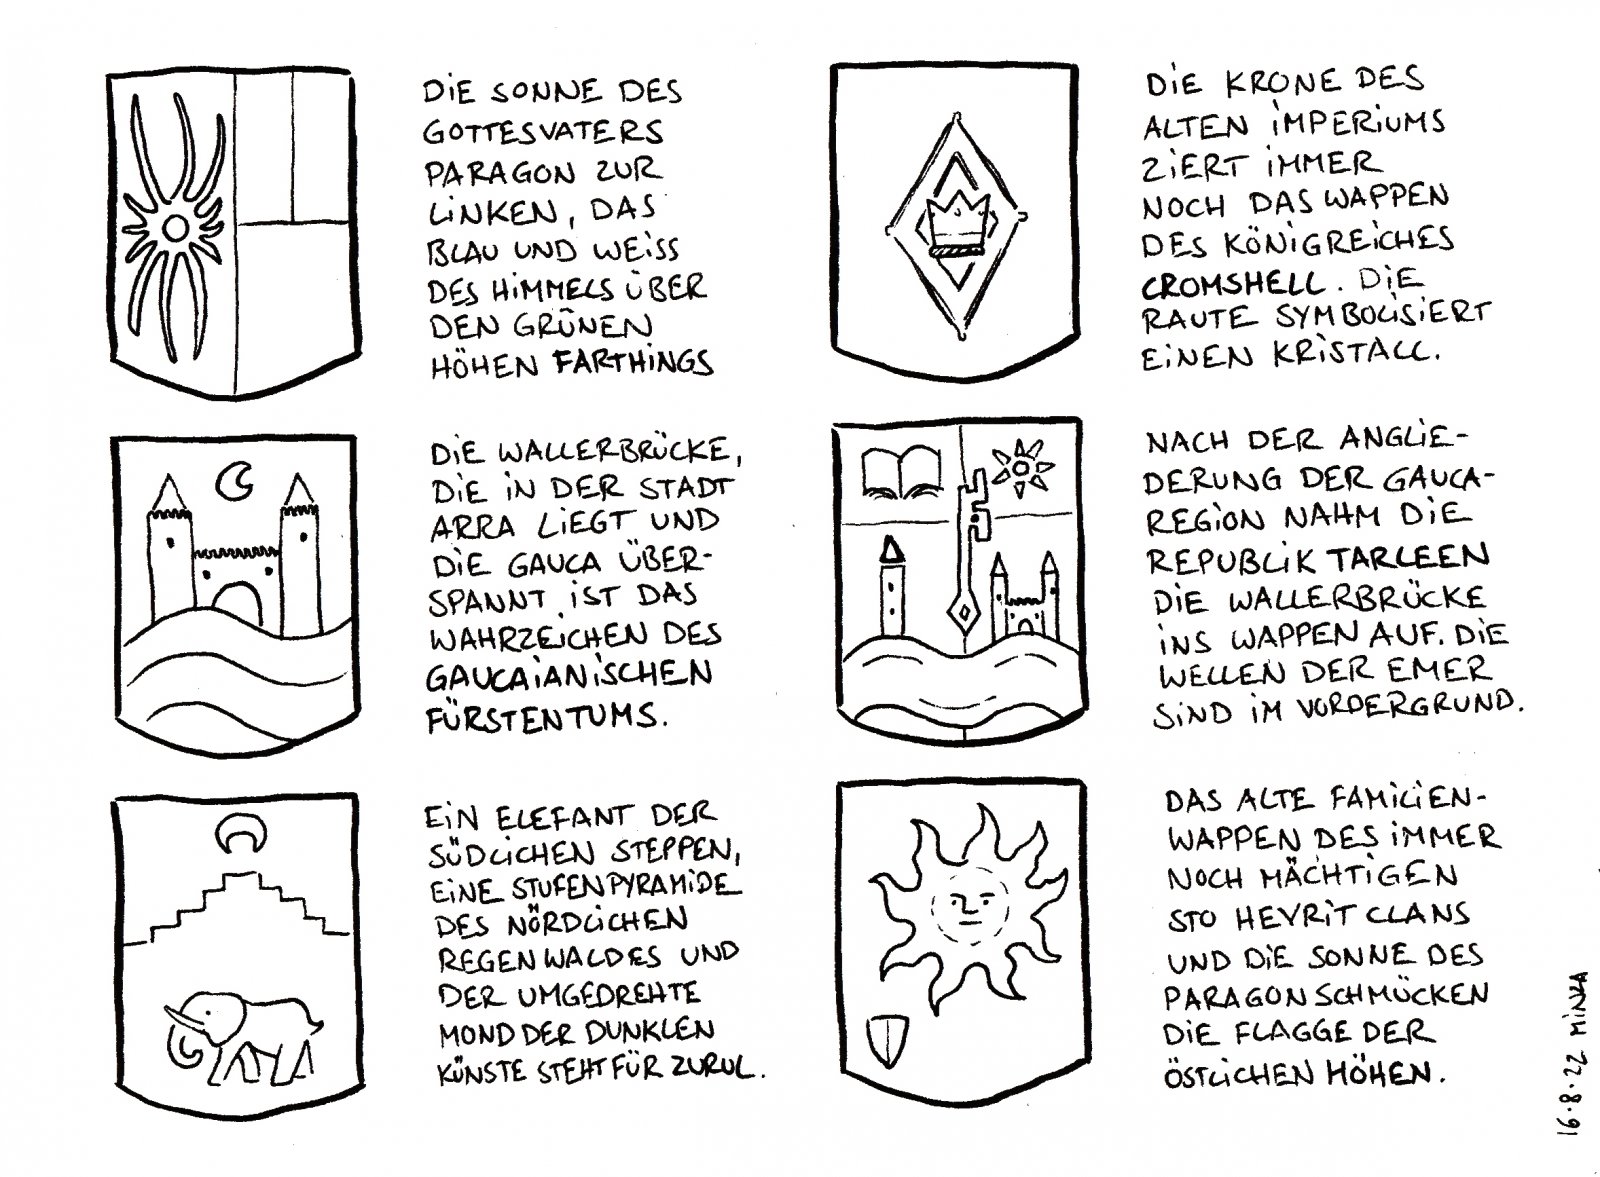 DIE SONNE DES
GOTTESVATERS
PARAGON ZUR
LINKEN, DAS
BLAU UND WEISS
DES HIMMELS ÜBER
DEN GRÜNEN
HÖHEN FARTHINGS
DIE KRONE DES
ALTEN IMPERIUMS
ZIERT IMMER
NOCH DAS WAPPEN
DES KÖNIGREICHES
CROMSHELL. DIE
RAUTE SYMBOLISIERT
EINEN KRISTALL.
DIE WALLERBRÜCKE,
DIE IN DER STADT
ARRA LIEGT UND
DIE GAUCA ÜBER-
SPANNT IST DAS
WAHRZEICHEN DES
GAUCAIANISCHEN
FÜRSTENTUMS.
NACH DER ANGLIE-
DERUNG DER GAUCA-
REGION NAHM DIE
REPUBLIK TARLEEN
DIE WALLERBRÜCKE
INS WAPPEN AUF. DIE
WELLEN DER EMER
SIND IM VORDERGRUND.
EIN ELEFANT DER
SÜDLICHEN STEPPEN,
EINE STUFENPYRAMIDE
DES NÖRDLICHEN
REGENWALDES UND
DER UMGEDREHTE
MOND DER DUNKLEN
KÜNSTE STEHT FÜR ZURUL.
DAS ALTE FAMILIEN-
WAPPEN DES IMMER
NOCH MÄCHTIGEN
STO HEVRIT CLANS
UND DIE SONNE DES
PARAGON SCHMÜCKEN
DIE FLAGGE DER
ÖSTLICHEN HÖHEN.
16.8.22 MINZA